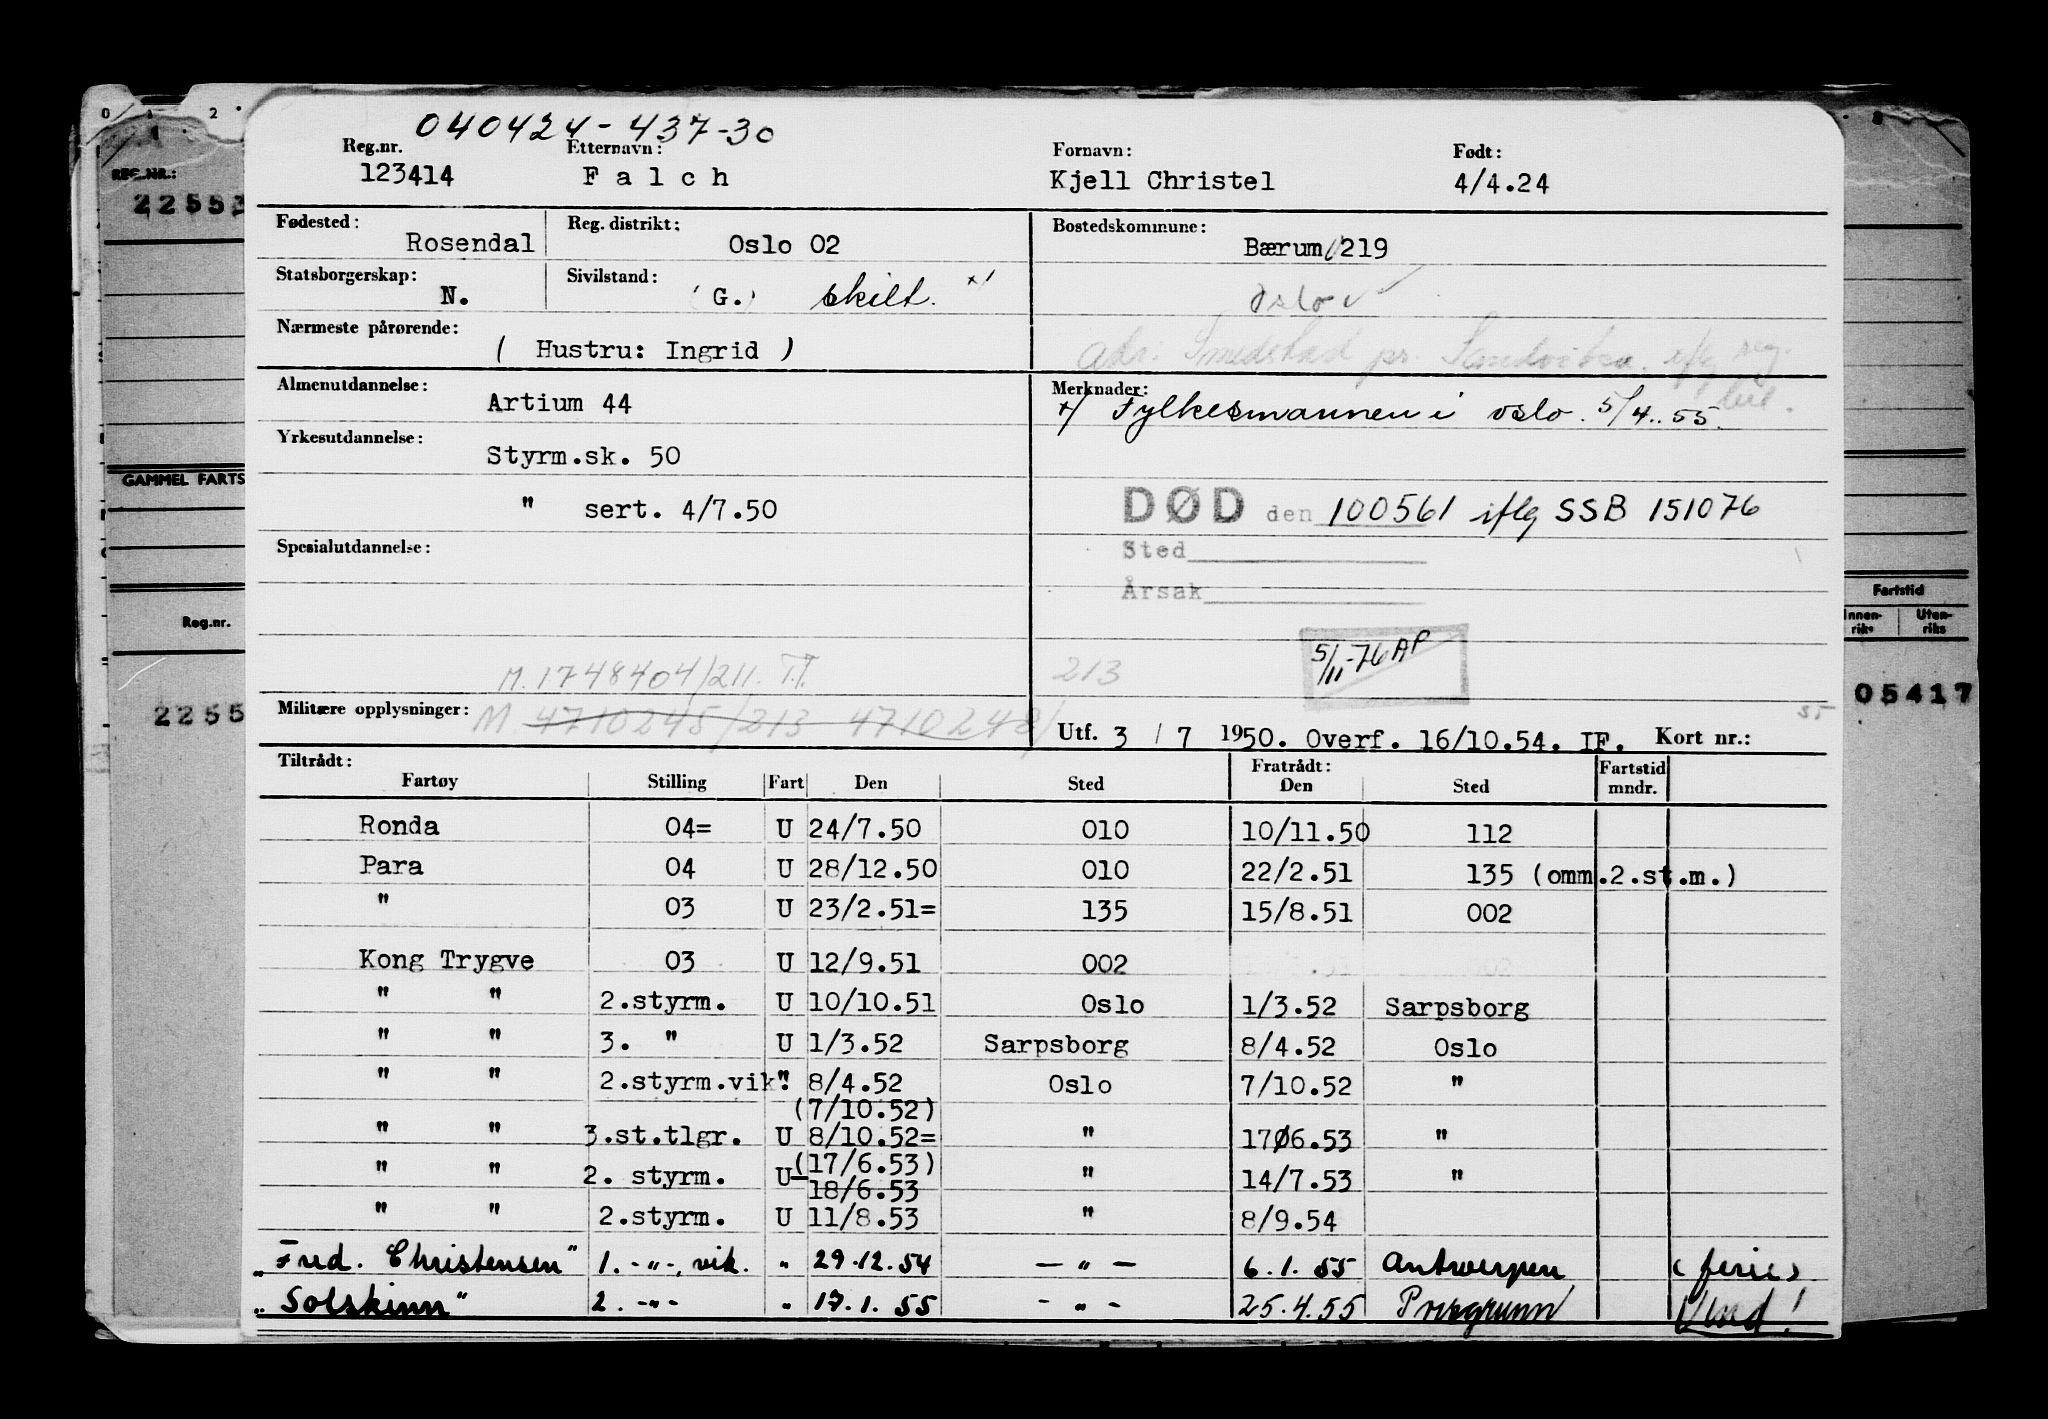 040424-437-30
Reg.nr. Etternavn: Fornavn: Født:
123414 Falch Kjell Christel 4/4.24
Fødested: Rosendal Reg. distrikt: Oslo 02 Bostedskommune: Bærum 0219
Statsborgerskap: N. Sivilstand: (G.) skilt. x/ Oslo
Nærmeste pårørende: ( Hustru: Ingrid ) adr. Smedstad pr. Sandvika. iflg reg.
Almenutdannelse: Artium 44 Merknader: x/ Fylkesmannen i Oslo. 5/4..55.
Yrkesutdannelse: Styrm.sk. 50
" sert. 4/7.50 DØD den 100561 iflg SSB 151076
Spesialutdannelse: Sted
Årsak
5/11-76 AP
M.1748404/211. T.T. 213
Militære opplysninger: M 4710245/213 4710248/
Utf. 3 / 7 1950. Overf. 16/10.54. IF. Kort nr.:
Tiltrådt: Fratrådt: Fartstid
Fartøy Stilling Fart Den Sted Den Sted mndr.
Ronda 04= U 24/7.50 010 10/11.50 112
Para 04 U 28/12.50 010 22/2.51 135 (omm.2.st.m.)
" 03 U 23/2.51= 135 15/8.51 002
Kong Trygve 03 U 12/9.51 002
" " 2.styrm. U 10/10.51 Oslo 1/3.52 Sarpsborg
" " 3. " U 1/3.52 Sarpsborg 8/4.52 Oslo
" " 2.styrm.vik. " 8/4.52 Oslo 7/10.52 "
(7/10.52)
" " 3.st.tlgr. U 8/10.52= " 17/6.53 "
(17/6.53)
" " 2. styrm. U 18/6.53 " 14/7.53 "
" " 2.styrm. U 11/8.53 " 8/9.54
"Fred. Christensen" 1. -"-, vik. " 29.12.54 -"- 6.1.55 Antwerpen (ferie)
"Solskinn" 2. -"- " 17.1.55 -"- 25.4.55 Prersgrunn
REG.NR.:
22553
GAMMEL FARTS
Reg.nr.
2255
Fartstid
Innen-riks Uten-riks
05417